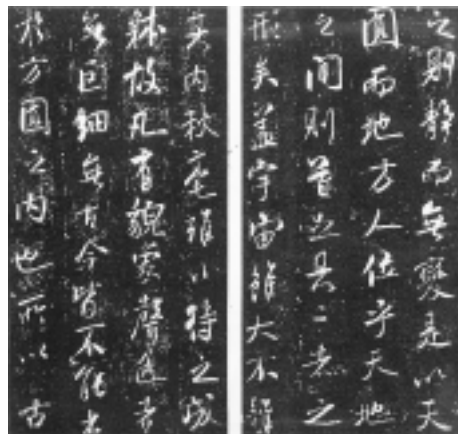 之則靜而無變是以天
圓而地方人位乎天地
之間則首足具二者之
形矣蓋宇宙雖大不離
其内秋毫雖小待之成
體故凡有貌象聲色者
無巨細無古今皆不能出
於方圓之内也所以古